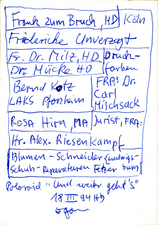 Frank zum Bruch, HD / Köln
Friederike Unverzagt
Fr. Dr. Milz, HD
Druck-
Dr. Mücke HD
farben
Bernd Kotz
LAKS Pforzheim
FRA: Dr.
Carl
Milchsack
Rosa Hirn MA
Jurist, FRA:
Hr. Alex. Riesenkampf
Blumen-Schneider Ludwigs-
Schuh-Reparaturen
Polaroid "Und weiter geht's"
18 III 94 HD